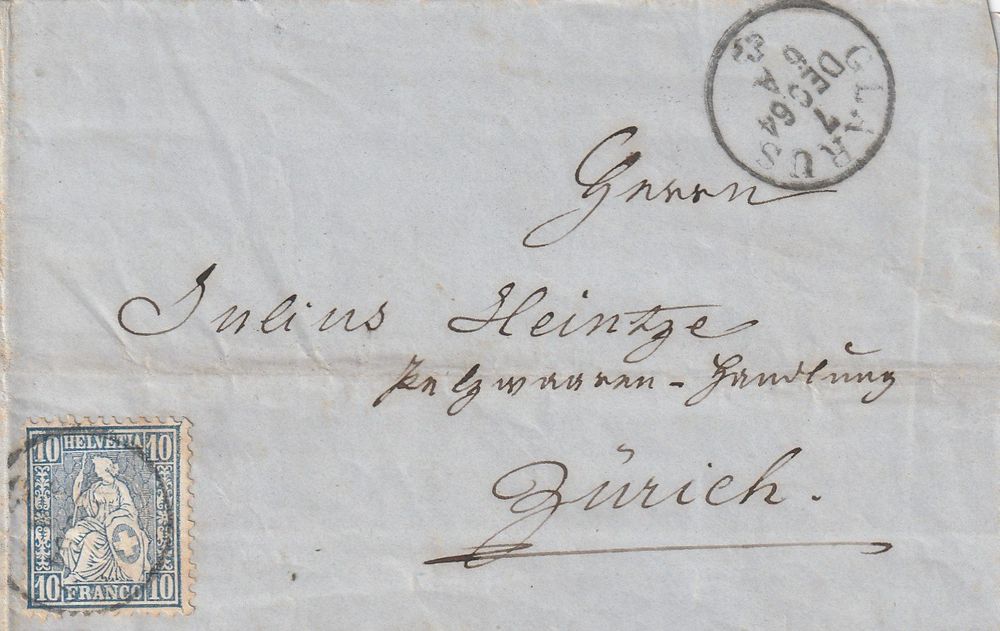 GLARUS
7
DEC 64
6 A
Herrn
Julius Heintze
Pelzwaaren-Handlung
Zürich.
10 HELVETIA 10
10 FRANCO 10